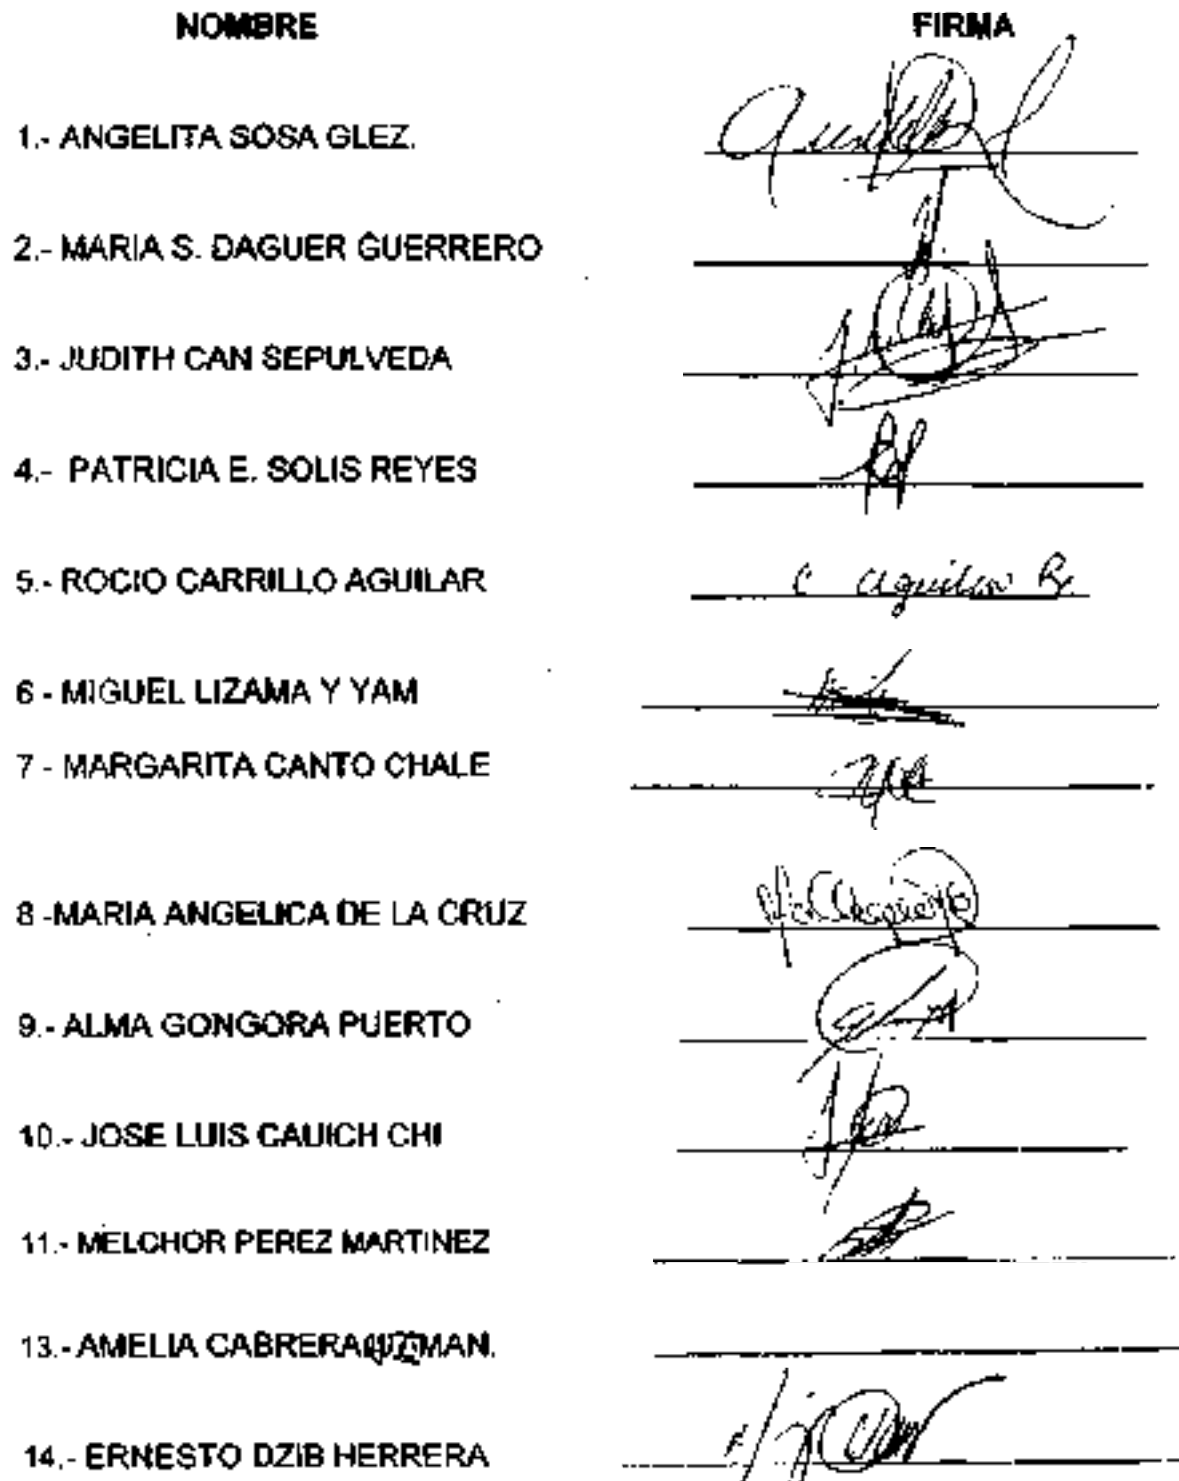 NOMBRE FIRMA
1.- ANGELITA SOSA GLEZ.
2.- MARIA S. DAGUER GUERRERO
3.- JUDITH CAN SEPULVEDA
4.- PATRICIA E. SOLIS REYES
5.- ROCIO CARRILLO AGUILAR C Aguilar R
6 - MIGUEL LIZAMA Y YAM
7 - MARGARITA CANTO CHALE
8 -MARIA ANGELICA DE LA CRUZ
9.- ALMA GONGORA PUERTO
10.- JOSE LUIS CAUICH CHI
11.- MELCHOR PEREZ MARTINEZ
13.- AMELIA CABRERA GUZMAN.
14.- ERNESTO DZIB HERRERA